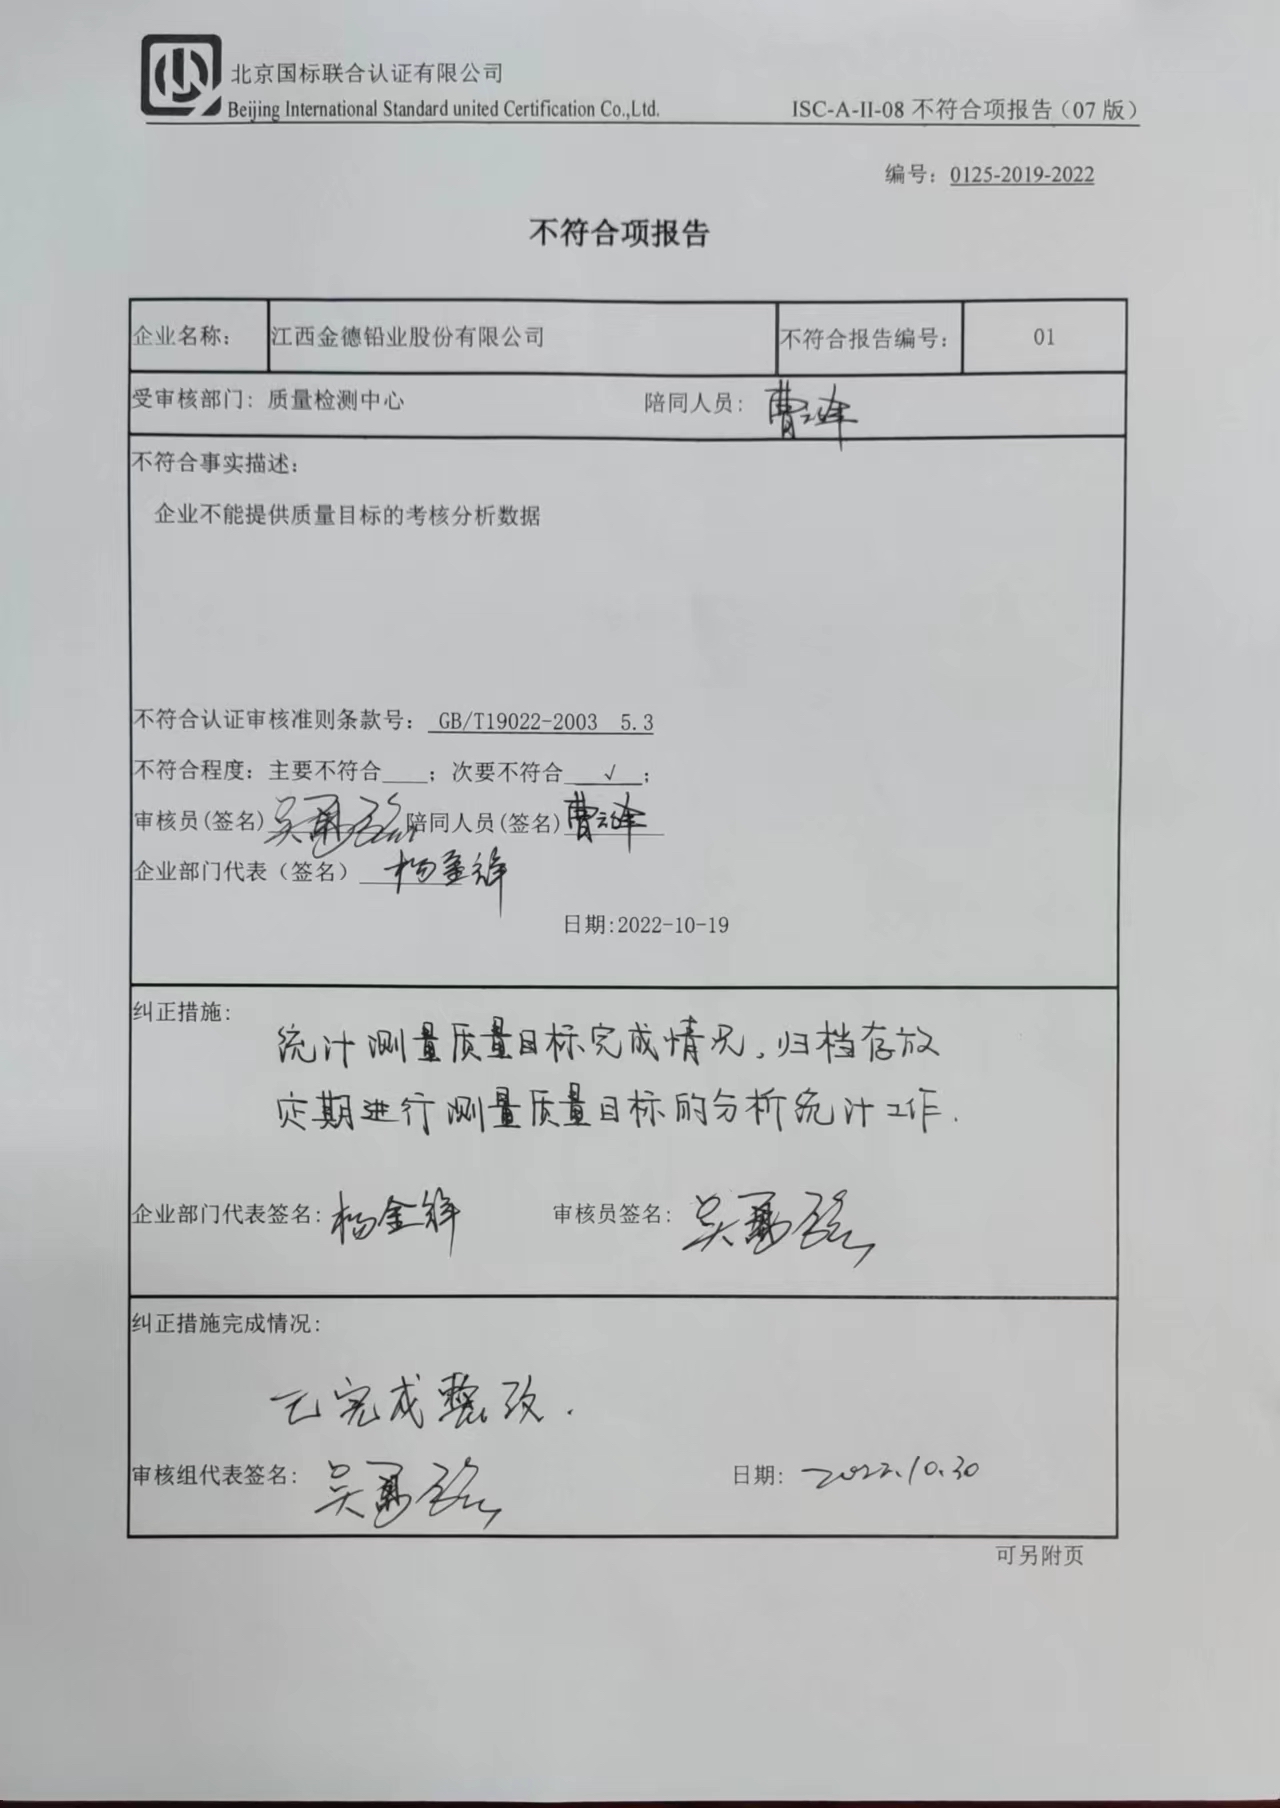 北京国标联合认证有限公司
Beijing International Standard united Certification Co.,Ltd.
ISC-A-II-08 不符合项报告（07 版）
编号：0125-2019-2022
不符合项报告
企业名称： 江西金德铅业股份有限公司 不符合报告编号： 01
受审核部门：质量检测中心 陪同人员：
不符合事实描述：
企业不能提供质量目标的考核分析数据
不符合认证审核准则条款号： GB/T19022-2003 5.3
不符合程度：主要不符合____；次要不符合 √ ；
审核员(签名) 陪同人员(签名)
企业部门代表（签名）
日期:2022-10-19
纠正措施：
统计测量质量目标完成情况，归档存放
定期进行测量质量目标的分析统计工作.
企业部门代表签名： 审核员签名：
纠正措施完成情况：
已完成整改.
审核组代表签名： 日期： 2022.10.30
可另附页